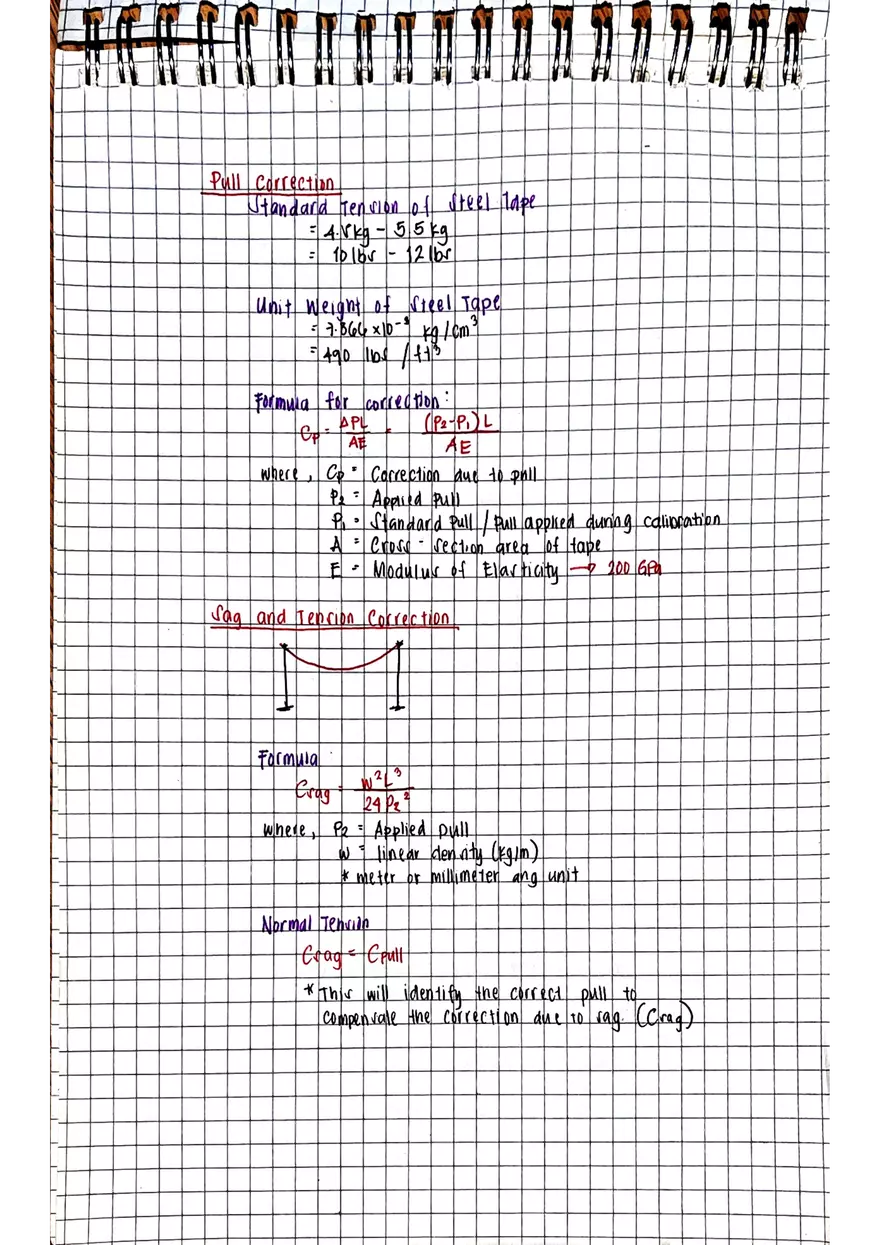 Pull Correction
Standard Tension of Steel Tape
= 4.5kg - 5.5kg
= 10 lbs - 12 lbs
Unit Weight of Steel Tape
= 7.866 x10⁻³ kg/cm³
= 490 lbs / ft³
Formula for correction:
Cp = ΔPL/AE = (P2-P1)L/AE
where, Cp = Correction due to pull
P2 = Applied Pull
P1 = Standard pull / Pull applied during calibration
A = Cross-section area of tape
E = Modulus of Elasticity → 200 GPa
Sag and Tension Correction
Formula
Csag = w²L³/24P2²
where, P2 = Applied pull
w = linear density (kg/m)
* meter or millimeter ang unit
Normal Tension
Csag = Cpull
* This will identify the correct pull to
compensate the correction due to sag. (Csag)